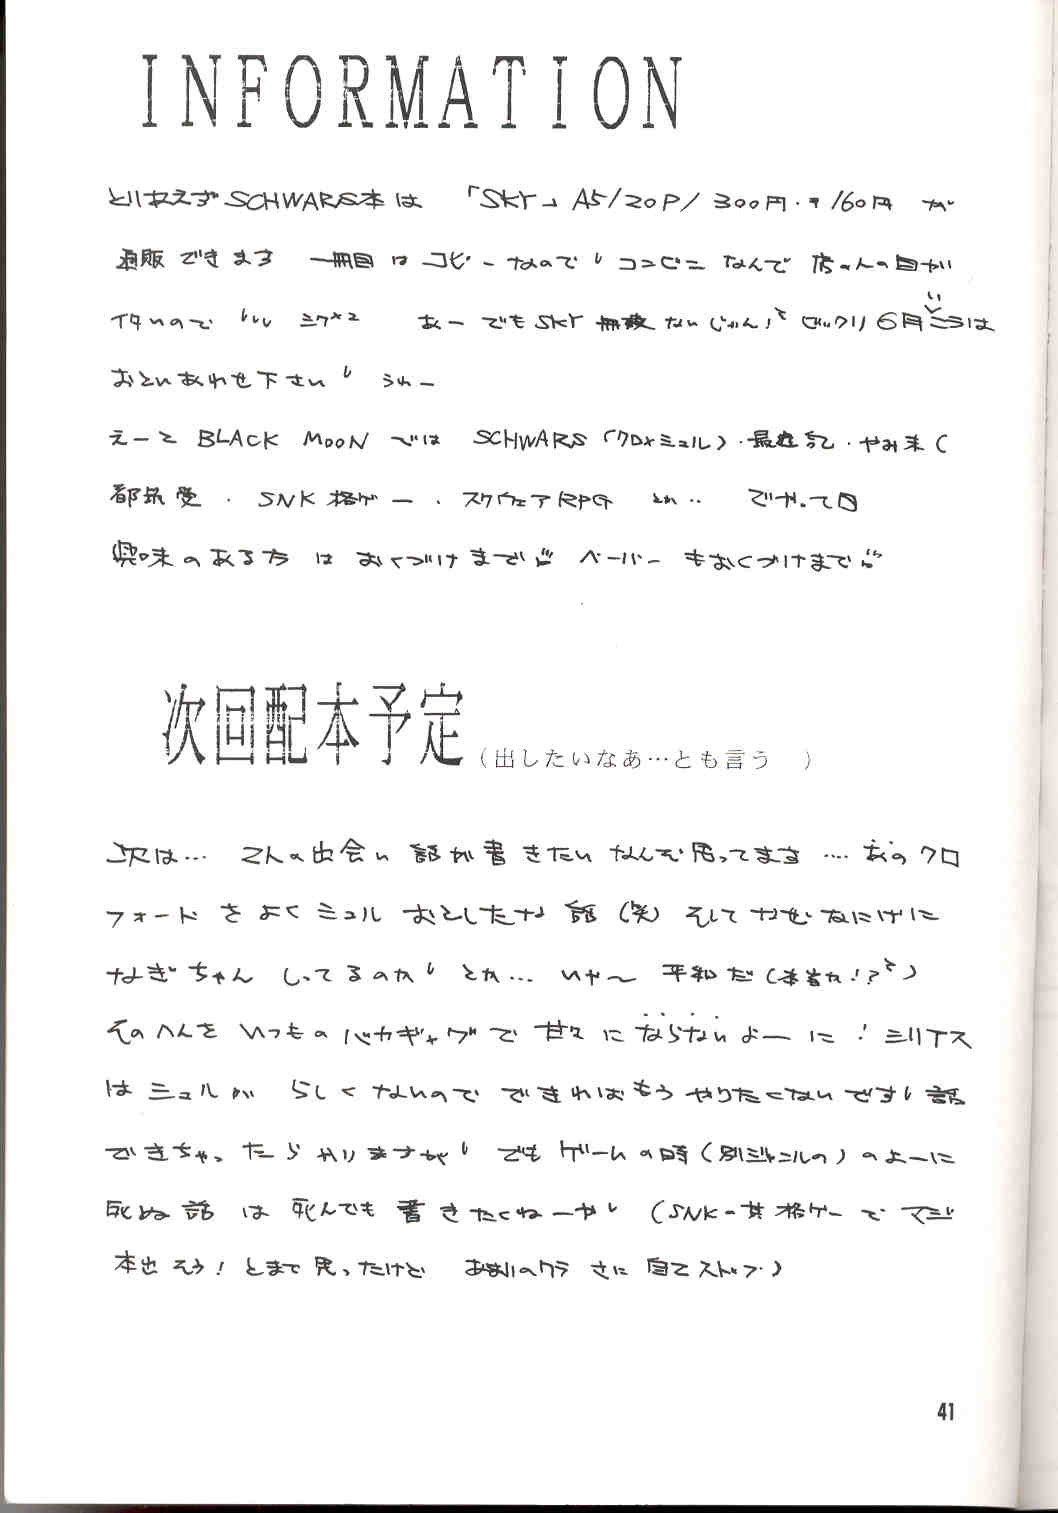 INFORMATION
とりあえずSCHWARS本は 「SKY」A5/20P/300円・〒160円 が
通販できます 一冊目はコピーなので コンビニなんで 店の人の目が
イタいので あーでもSKY 無ないじゃん! ビックリ 6月いこうは
おといあわせ下さい うれー
えーと BLACK MOON では SCHWARS(クロ×ミュル)・最遊記・やみ末(
都筑受・SNK格ゲー・スクウェアRPG とか・・ でやってる
興味のある方 は おくづけまで ペーパーもおくづけまで
次回配本予定
(出したいなぁ…とも言う )
次は… 2人の出会い 話が書きたいなんぞ思ってます …. あのクロ
フォードをよくミュルおとしたな 話(笑)そして やむなにげに
なぎちゃん しってるのか とか… いや〜 平和だ(本当か!?)
そのへんを いつものバカギャグで甘々にならないよーに! ミリアス
はミュルが らしくないので できればもう やりたくないです 話
できちゃったらやりますが でもゲームの時(別ジャンルの)のよーに
死ぬ話 は 死んでも書きたくねーや (SNKの某格ゲーでマジ
本出そう!とまで思ったけど あまりのクラさに自己ストップ)
41